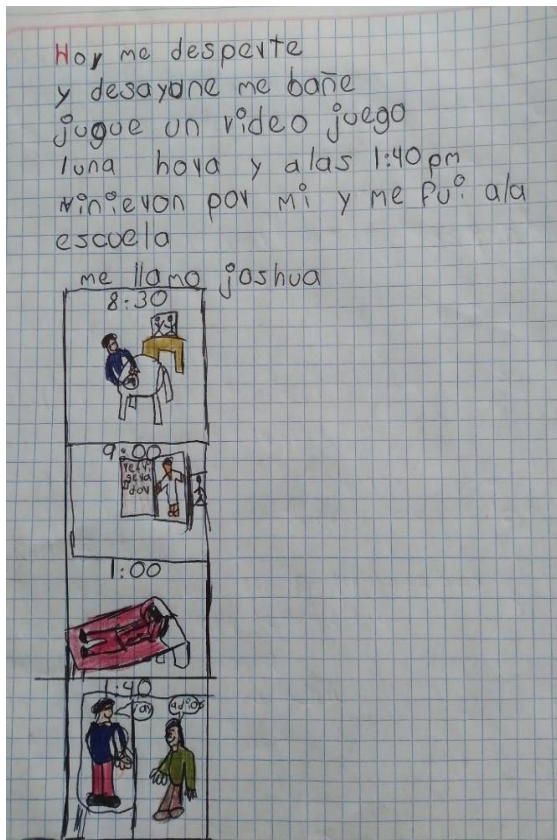 Hoy me desperte
y desayune me bañe
jugue un video juego
1una hora y alas 1:40 pm
vinieron por mi y me fui ala
escuela
me llamo joshua
8:30
9:00
refri
gera
dor
1:00
1:40
adios